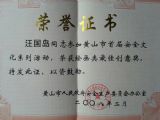 荣誉证书
汪国岛同志参加黄山市首届安全文
化系列活动，荣获绘画类最佳创意奖，
特发此证，以资鼓励。
黄山市人民政府安全生产委员会办公室
二〇〇八年二月